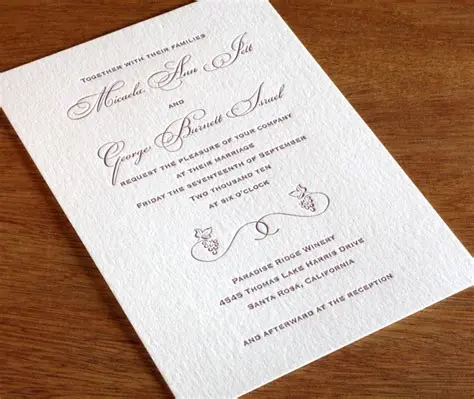 Together with their families
Micaela Ann Jett
and
George Burnett Israel
request the pleasure of your company
at their marriage
Friday the seventeenth of September
Two thousand ten
at six o'clock
Paradise Ridge Winery
4545 Thomas Lake Harris Drive
Santa Rosa, California
and afterward at the reception